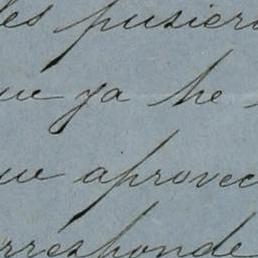 les pusiero
ue ya he
ue aprovec
rresponde